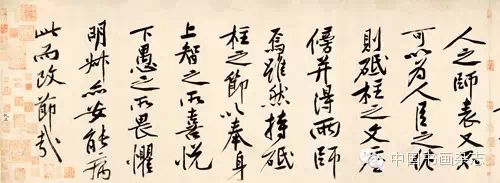 人之師表又不
可以為人臣之佐
則砥柱之文座
傍并得兩師
焉雖然持砥
柱之節以奉身
上智之所喜悅
下愚之所畏懼
明叔亦安能病
此而改節哉
中国书画杂志